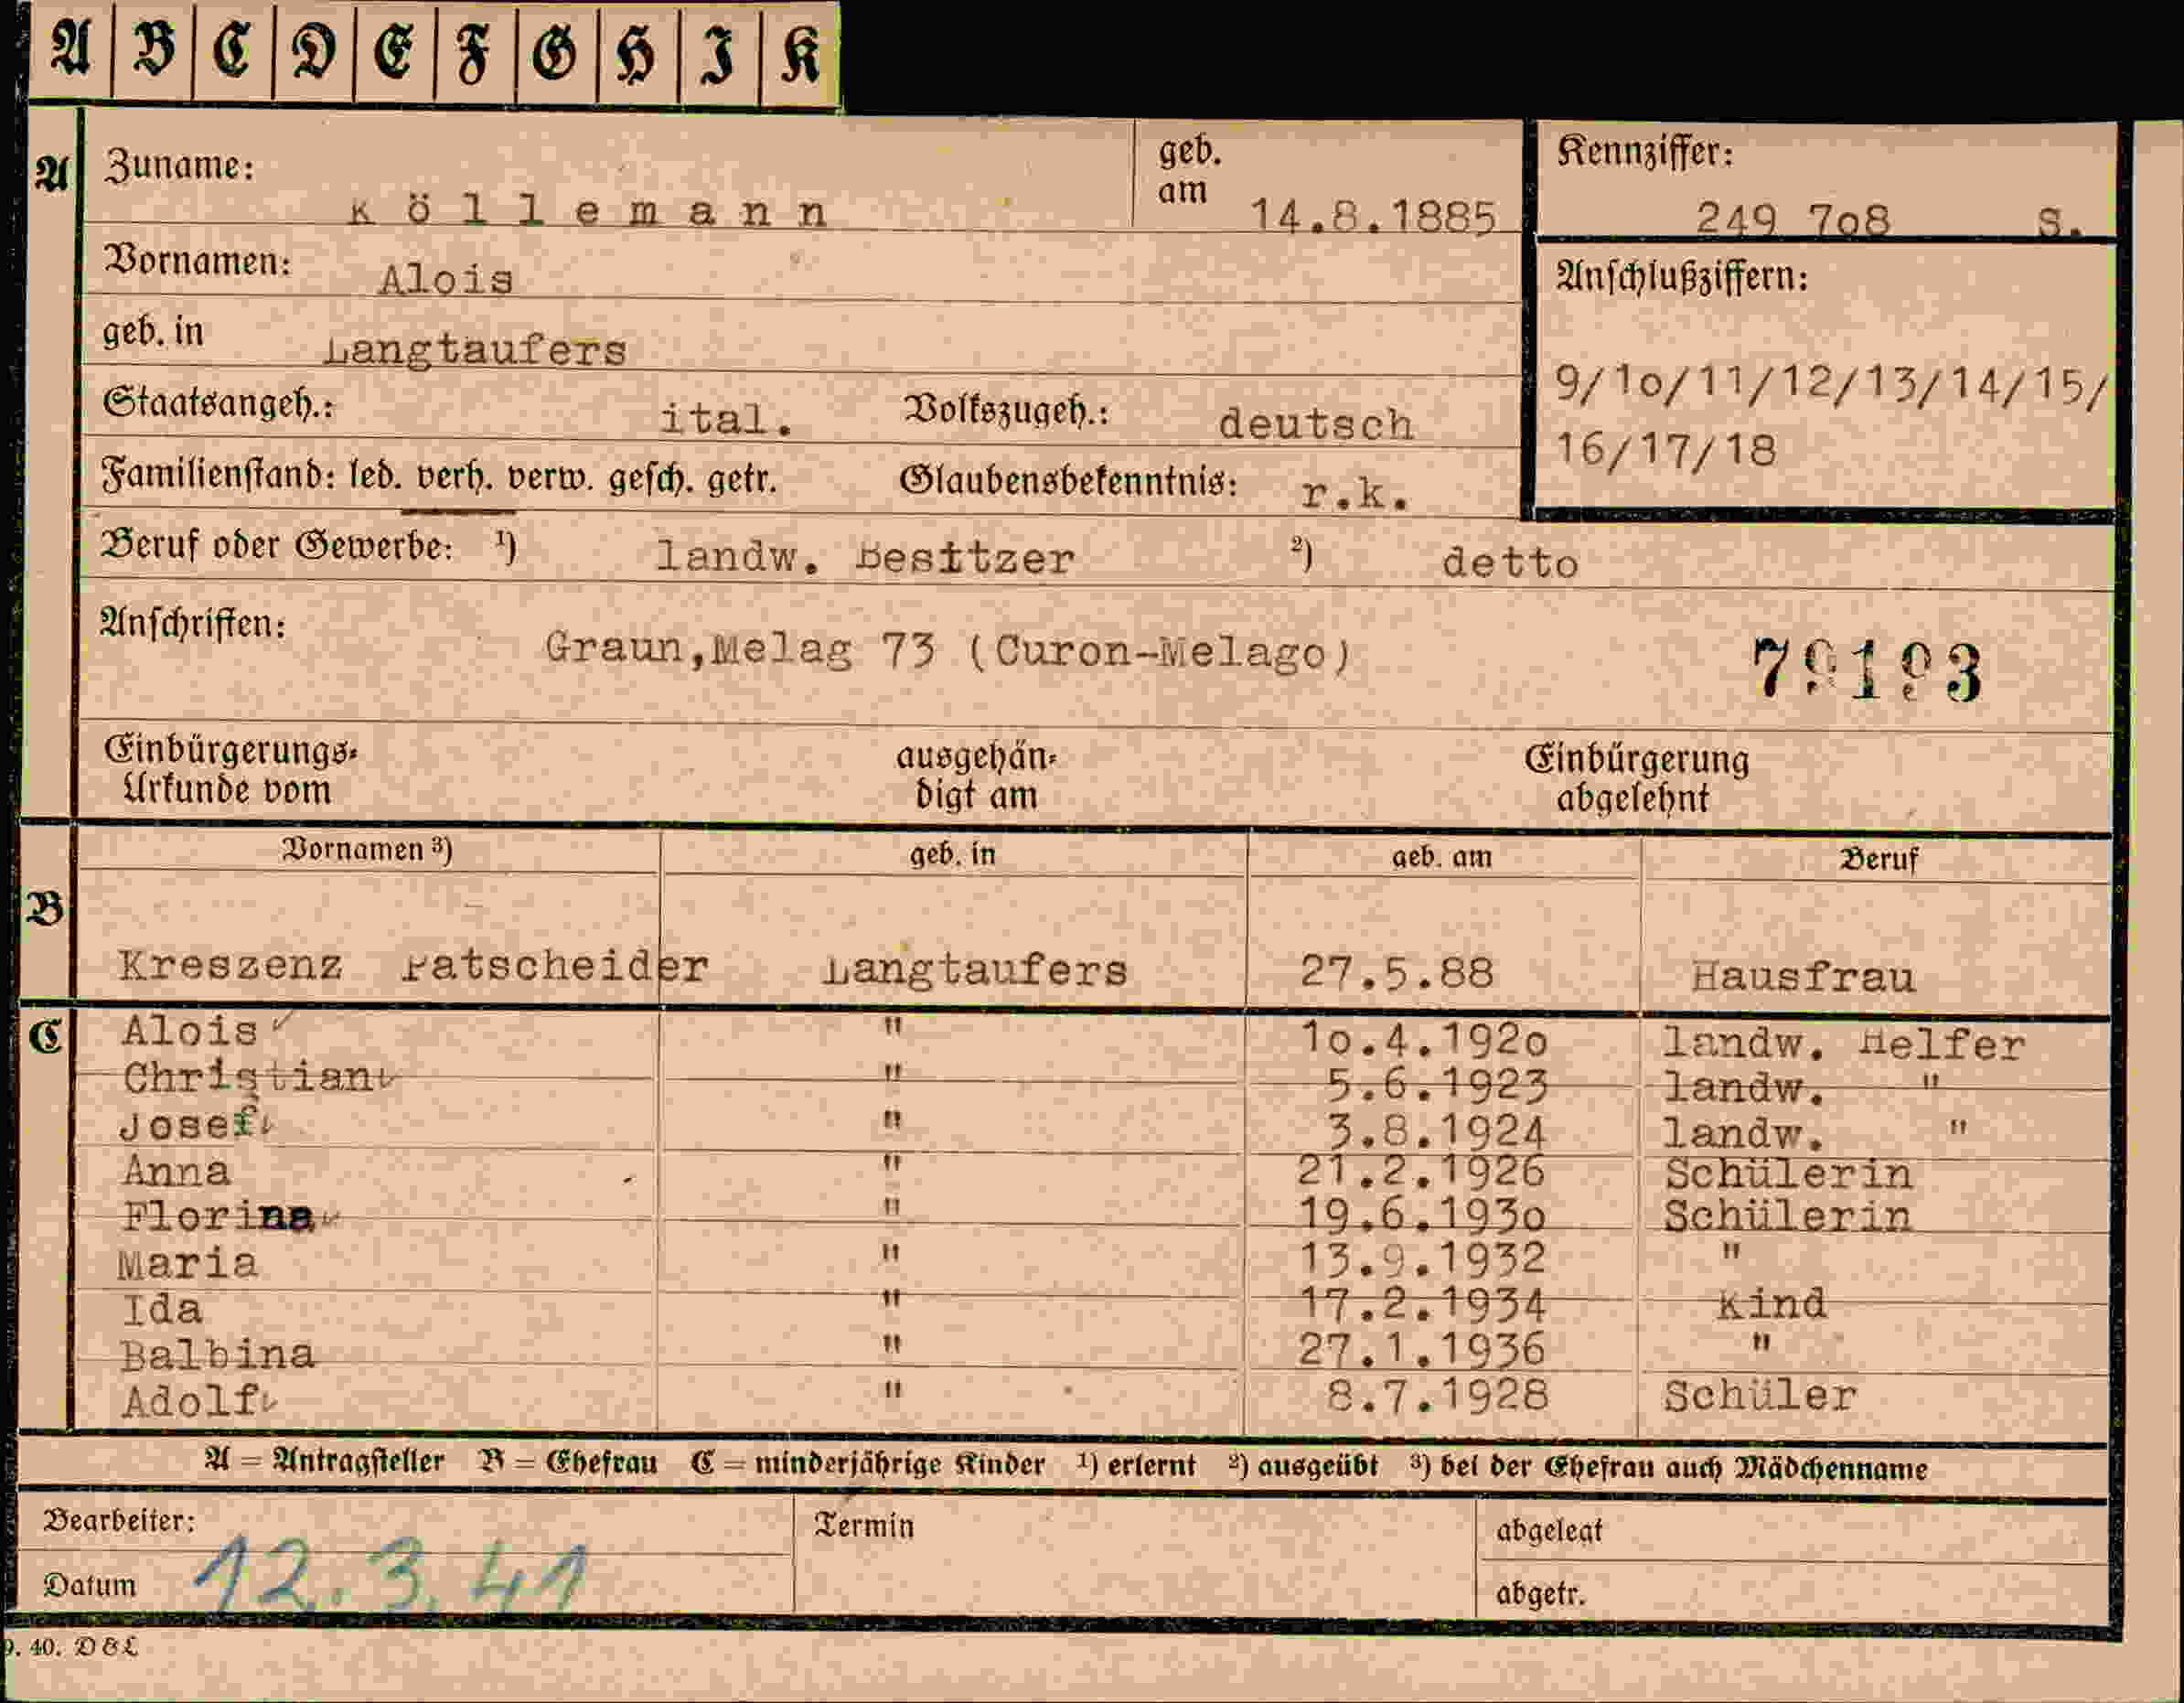 A B C D E F G H I K
A Zuname: Köllemann geb. am 14.8.1885 Kennziffer: 249 7o8 S.
Vornamen: Alois Anschlußziffern:
geb. in Langtaufers 9/1o/11/12/13/14/15/
Staatsangeh.: ital. Volkszugeh.: deutsch 16/17/18
Familienstand: led. verh. verw. gesch. getr. Glaubensbekenntnis: r.k.
Beruf oder Gewerbe: ¹) landw. Besitzer ²) detto
Anschriften: Graun,Melag 73 (Curon-Melago) 79193
Einbürgerungs- ausgehän- Einbürgerung
Urkunde vom digt am abgelehnt
Vornamen ³) geb. in geb. am Beruf
B Kreszenz Patscheider Langtaufers 27.5.88 Hausfrau
C Alois " 1o.4.192o landw. Helfer
Christian " 5.6.1923 landw. "
Josef " 3.8.1924 landw. "
Anna " 21.2.1926 Schülerin
Florina " 19.6.193o Schülerin
Maria " 13.9.1932 "
Ida " 17.2.1934 Kind
Balbina " 27.1.1936 "
Adolf " 8.7.1928 Schüler
A = Antragsteller B = Ehefrau C = minderjährige Kinder ¹) erlernt ²) ausgeübt ³) bei der Ehefrau auch Mädchenname
Bearbeiter: Termin abgelegt
Datum 12.3.41 abgetr.
9. 40. D&L